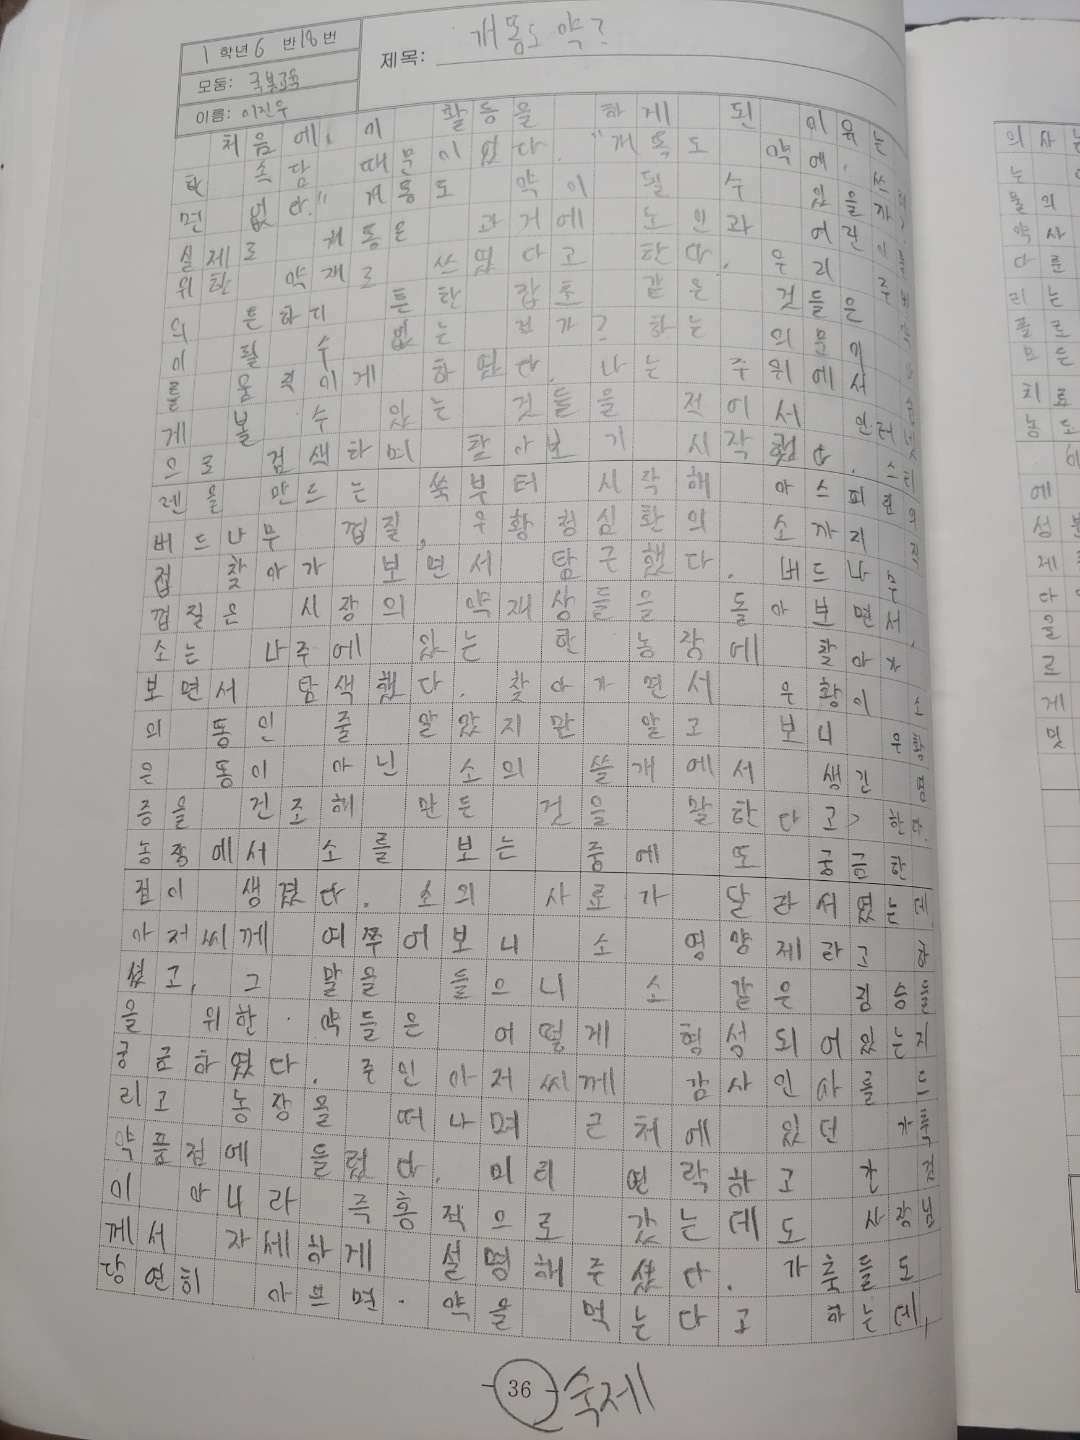 1 학년 6 반 18 번
모둠: 국봉고속
이름: 이진우
제목: 개똥도 약?
처음에, 이 활동을 하게 된 이유는
한 속담 때문이었다. "개똥도 약에, 쓰려
면 없다." 개똥도 약이 될 수 있을까
실제로 개똥은 과거에 노인과 어린이
위한 약재로 쓰였다고 한다. 우리 주
의 흔하디 흔한 잡초 같은 것들은
이 될 수 없는 건가? 하는 의문이
를 움직이게 하였다. 나는 주위에서
게 볼 수 있는 것들을 적어서 인터넷
으로 검색하며 찾아보기 시작했다. 스티
렌을 만드는 쑥부터 시작해 아스피린의
버드나무 껍질, 우황청심환의 소까지 직
접 찾아가 보면서 탐근했다. 버드나무
껍질은 시장의 약재상들을 돌아보면서,
소는 나주에 있는 한 농장에 찾아가
보면서 탐색했다. 찾아가면서 우황이 소
의 똥인 줄 알았지만 알고 보니 우황
은 똥이 아닌 소의 쓸개에서 생긴 염
증을 건조해 만든 것을 말한다고 한다.
농장에서 소를 보는 중에 또 궁금한
점이 생겼다. 소의 사료가 달라서였는데
아저씨께 여쭈어보니 소 영양제라고 하
셨고, 그 말을 들으니 소 같은 짐승들
을 위한 약들은 어떻게 형성되어있는지
궁금하였다. 주인아저씨께 감사인사를 드
리고 농장을 떠나며 근처에 있던 가축
약품점에 들렀다. 미리 연락하고 간 것
이 아니라 즉흥적으로 갔는데도 사장님
께서 자세하게 설명해주셨다. 가축들도
당연히 아프면 약을 먹는다고 하는데,
36 숙제